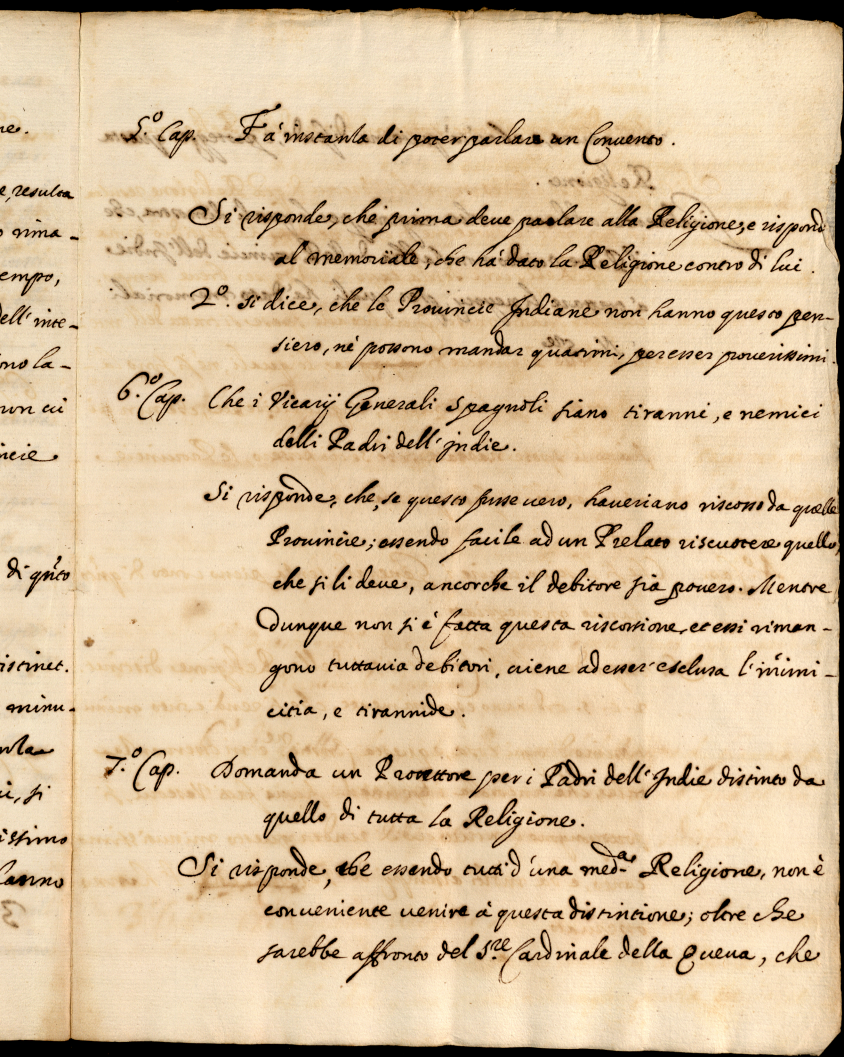 ne.
e, resulta
o rima-
empo,
dell' inte-
ono la-
non ci
incie
di qñto
istinct.
minu-
nula
ui, si
issimo
lanno
5.º Cap. Fà instanza di poter parlare un Convento.
Si risponde, che prima deve parlare alla Religione, e rispond
al memoriale, che hà dato la Religione contro di lui.
2º. si dice, che le Provincie Indiane non hanno questo pen-
siero, nè possono mandar quatrini, per esser poverissimi.
6.º Cap. Che i Vicarij Generali Spagnoli siano tiranni, e nemici
delli Padri dell' Indie.
Si risponde, che, se questo fusse uero, haueriano riscosso da quelle
Prouincie; essendo facile ad un Prelato riscuotere quello,
che si li deue, ancorche il debitore sia pouero. Mentre
dunque non si è fatta questa riscossione, et essi riman-
gono tuttauia debitori, uiene ad esser esclusa l' inimi-
citia, e tirannide.
7.º Cap. Domanda un Protettore per i Padri dell' Indie distinto da
quello di tutta la Religione.
Si risponde, che essendo tutti d' una med.ª Religione, non è
conueniente uenire à questa distintione; oltre che
sarebbe affronto del S.re Cardinale della Queua, che